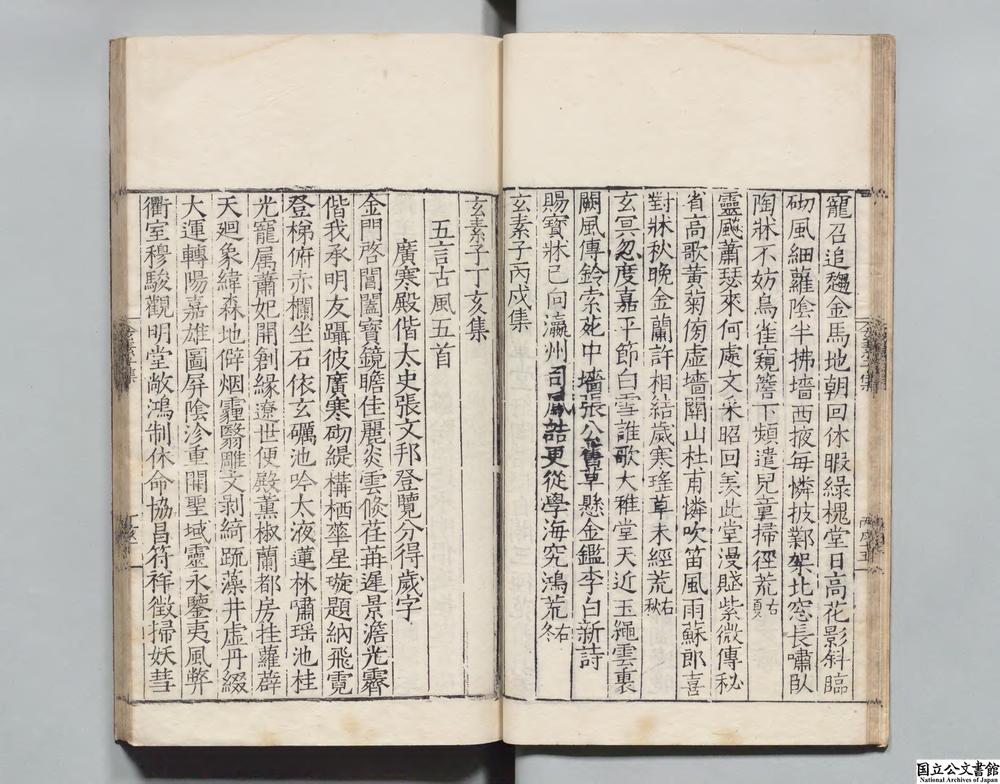 寵召追趨金馬地朝回休暇綠槐堂日高花影斜臨
砌風細蘿陰半拂墻西掖每憐披鄴架北窓長嘯臥
陶牀不妨鳥雀窺簷下頻遣兒童掃徑荒右夏
靈飈蕭瑟來何處文采昭回羡此堂漫賸紫微傳秘
省高歌黃菊傍虛墻關山杜甫憐吹笛風雨蘇郎喜
對牀秋晚金蘭許相結歲寒瑤草未經荒右秋
玄冥忽度嘉平節白雪誰歌大雅堂天近玉繩雲裏
闕風傳鈴索中墻張公舊草懸金鑑李白新詩
賜寶牀已向瀛州司誥更從學海究鴻荒右冬
玄素子丙戌集
玄素子丁亥集
五言古風五首
廣寒殿偕太史張文邦登覽分得歲字
金門啓閶闔寶鏡瞻佳麗炎雲倏荏苒遲景澹光霽
偕我承明友躡彼廣寒砌緹構栖華星璇題納飛霓
登梯俯赤欄坐石依玄礪池吟太液蓮林嘯瑶池桂
光寵属蕭妃開創緣遼世便殿薰椒蘭都房挂蘿薜
天廻象緯森地僻烟霾翳雕文剥綺疏藻井虛丹綴
大運轉陽嘉雄圖屏陰沴重開聖域靈永鑒夷風弊
衢室穆駿觀明堂敞鴻制休命協昌符祥徵掃妖彗
国立公文書館
National Archives of Japan